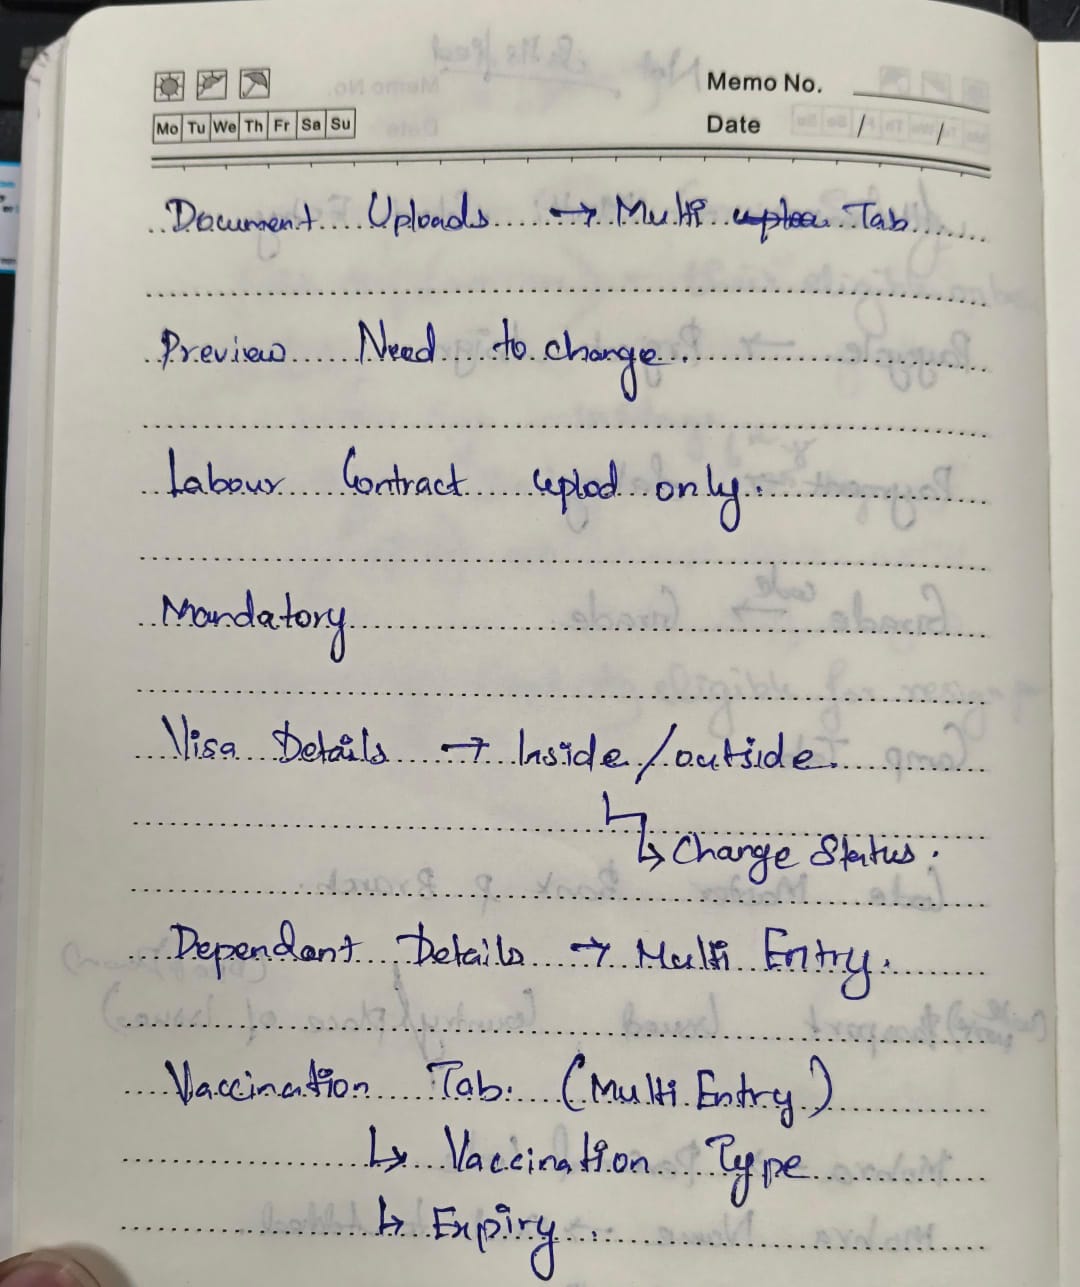 Memo No.
Mo Tu We Th Fr Sa Su
Date / /
Document Uploads → Multi Tab
Preview Need to change.
Labour Contract uplod only.
Mandatory
Visa Details → Inside/outside.
↳ Change Status.
Dependant Details → Multi Entry.
Vaccination Tab. (Multi Entry)
↳ Vaccination Type
↳ Expiry.